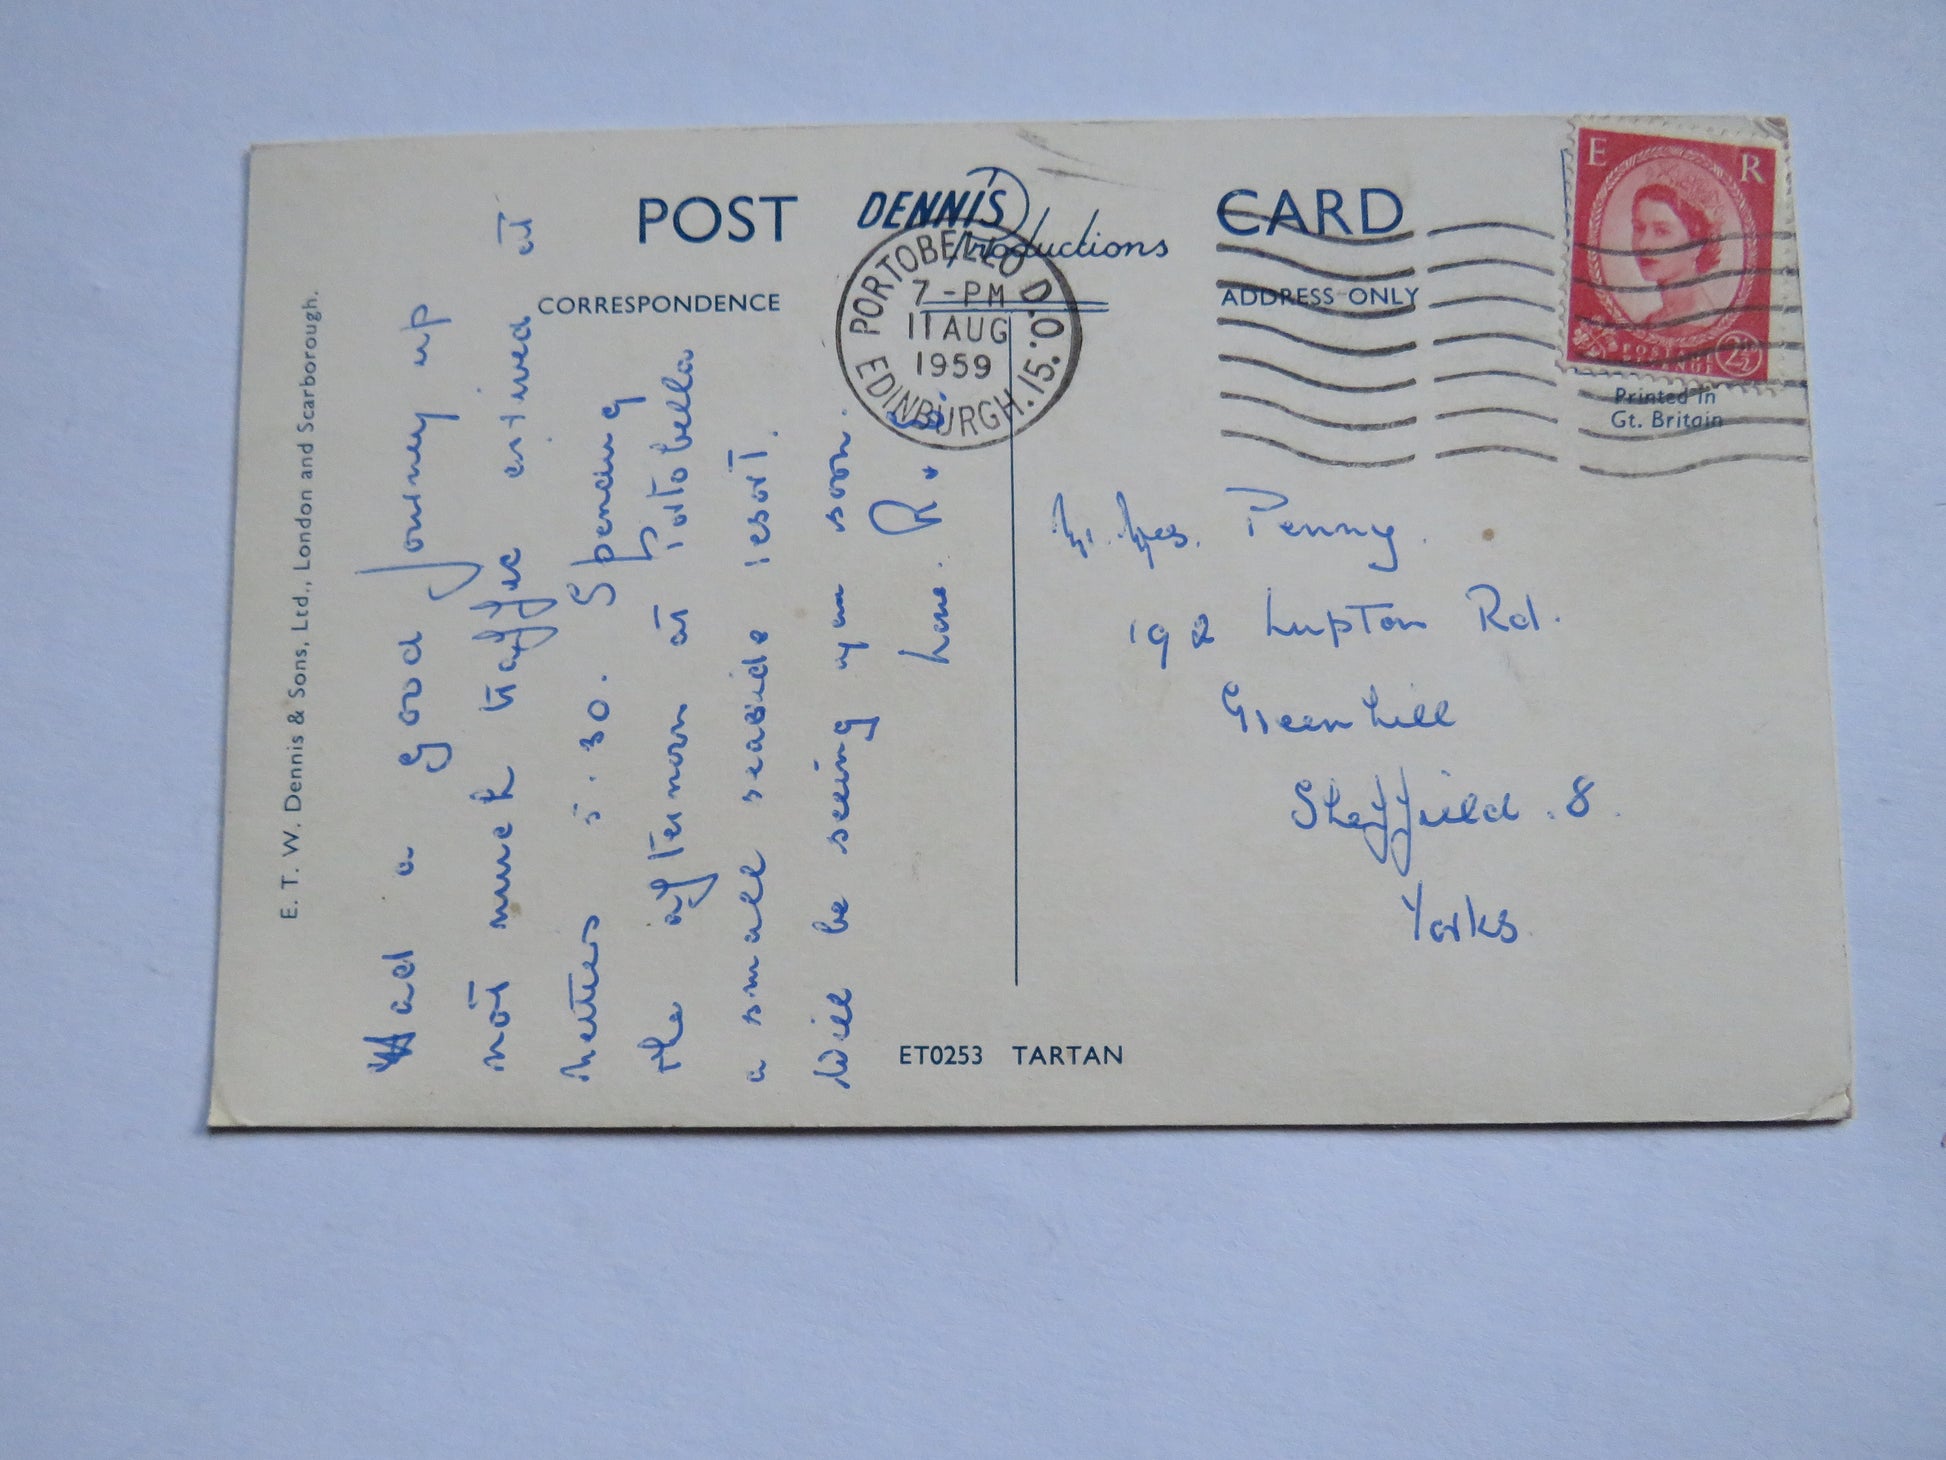 POST DENNIS Productions CARD
CORRESPONDENCE
ADDRESS ONLY
E. T. W. Dennis & Sons, Ltd., London and Scarborough.
PORTOBELLO D.O.
7 - PM
11 AUG
1959
EDINBURGH. 15.
E R
POSTAGE
REVENUE
2½D
Printed in
Gt. Britain
Had a good journey up
not much traffic arrived at
5.30. Spending
the afternoon at Portobello
a small seaside resort.
Will be seeing you soon.
Love. R
Penny.
192 Lupton Rd.
Greenhill
Sheffield. 8.
Yorks
ET0253 TARTAN